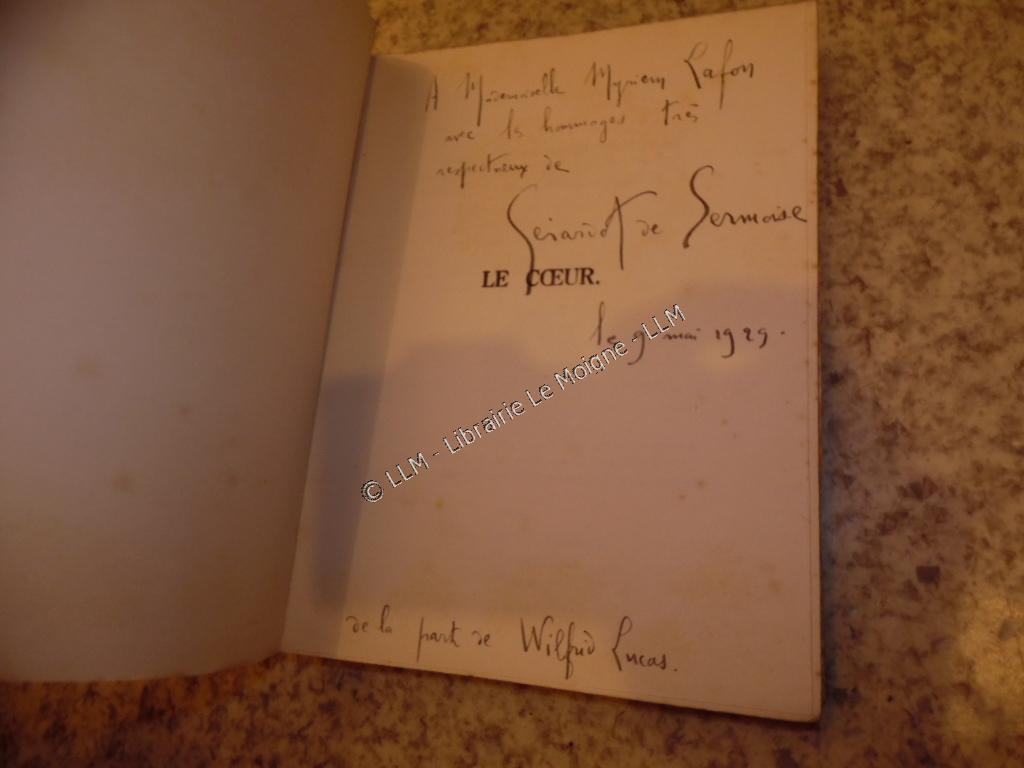 A Mademoiselle Myriem Lafon
avec les hommages très
respectueux de
Gérardot de Sermoise
LE CŒUR.
le 9 mai 1929.
© LLM - Librairie Le Moigne - LLM
de la part de Wilfrid Lucas.